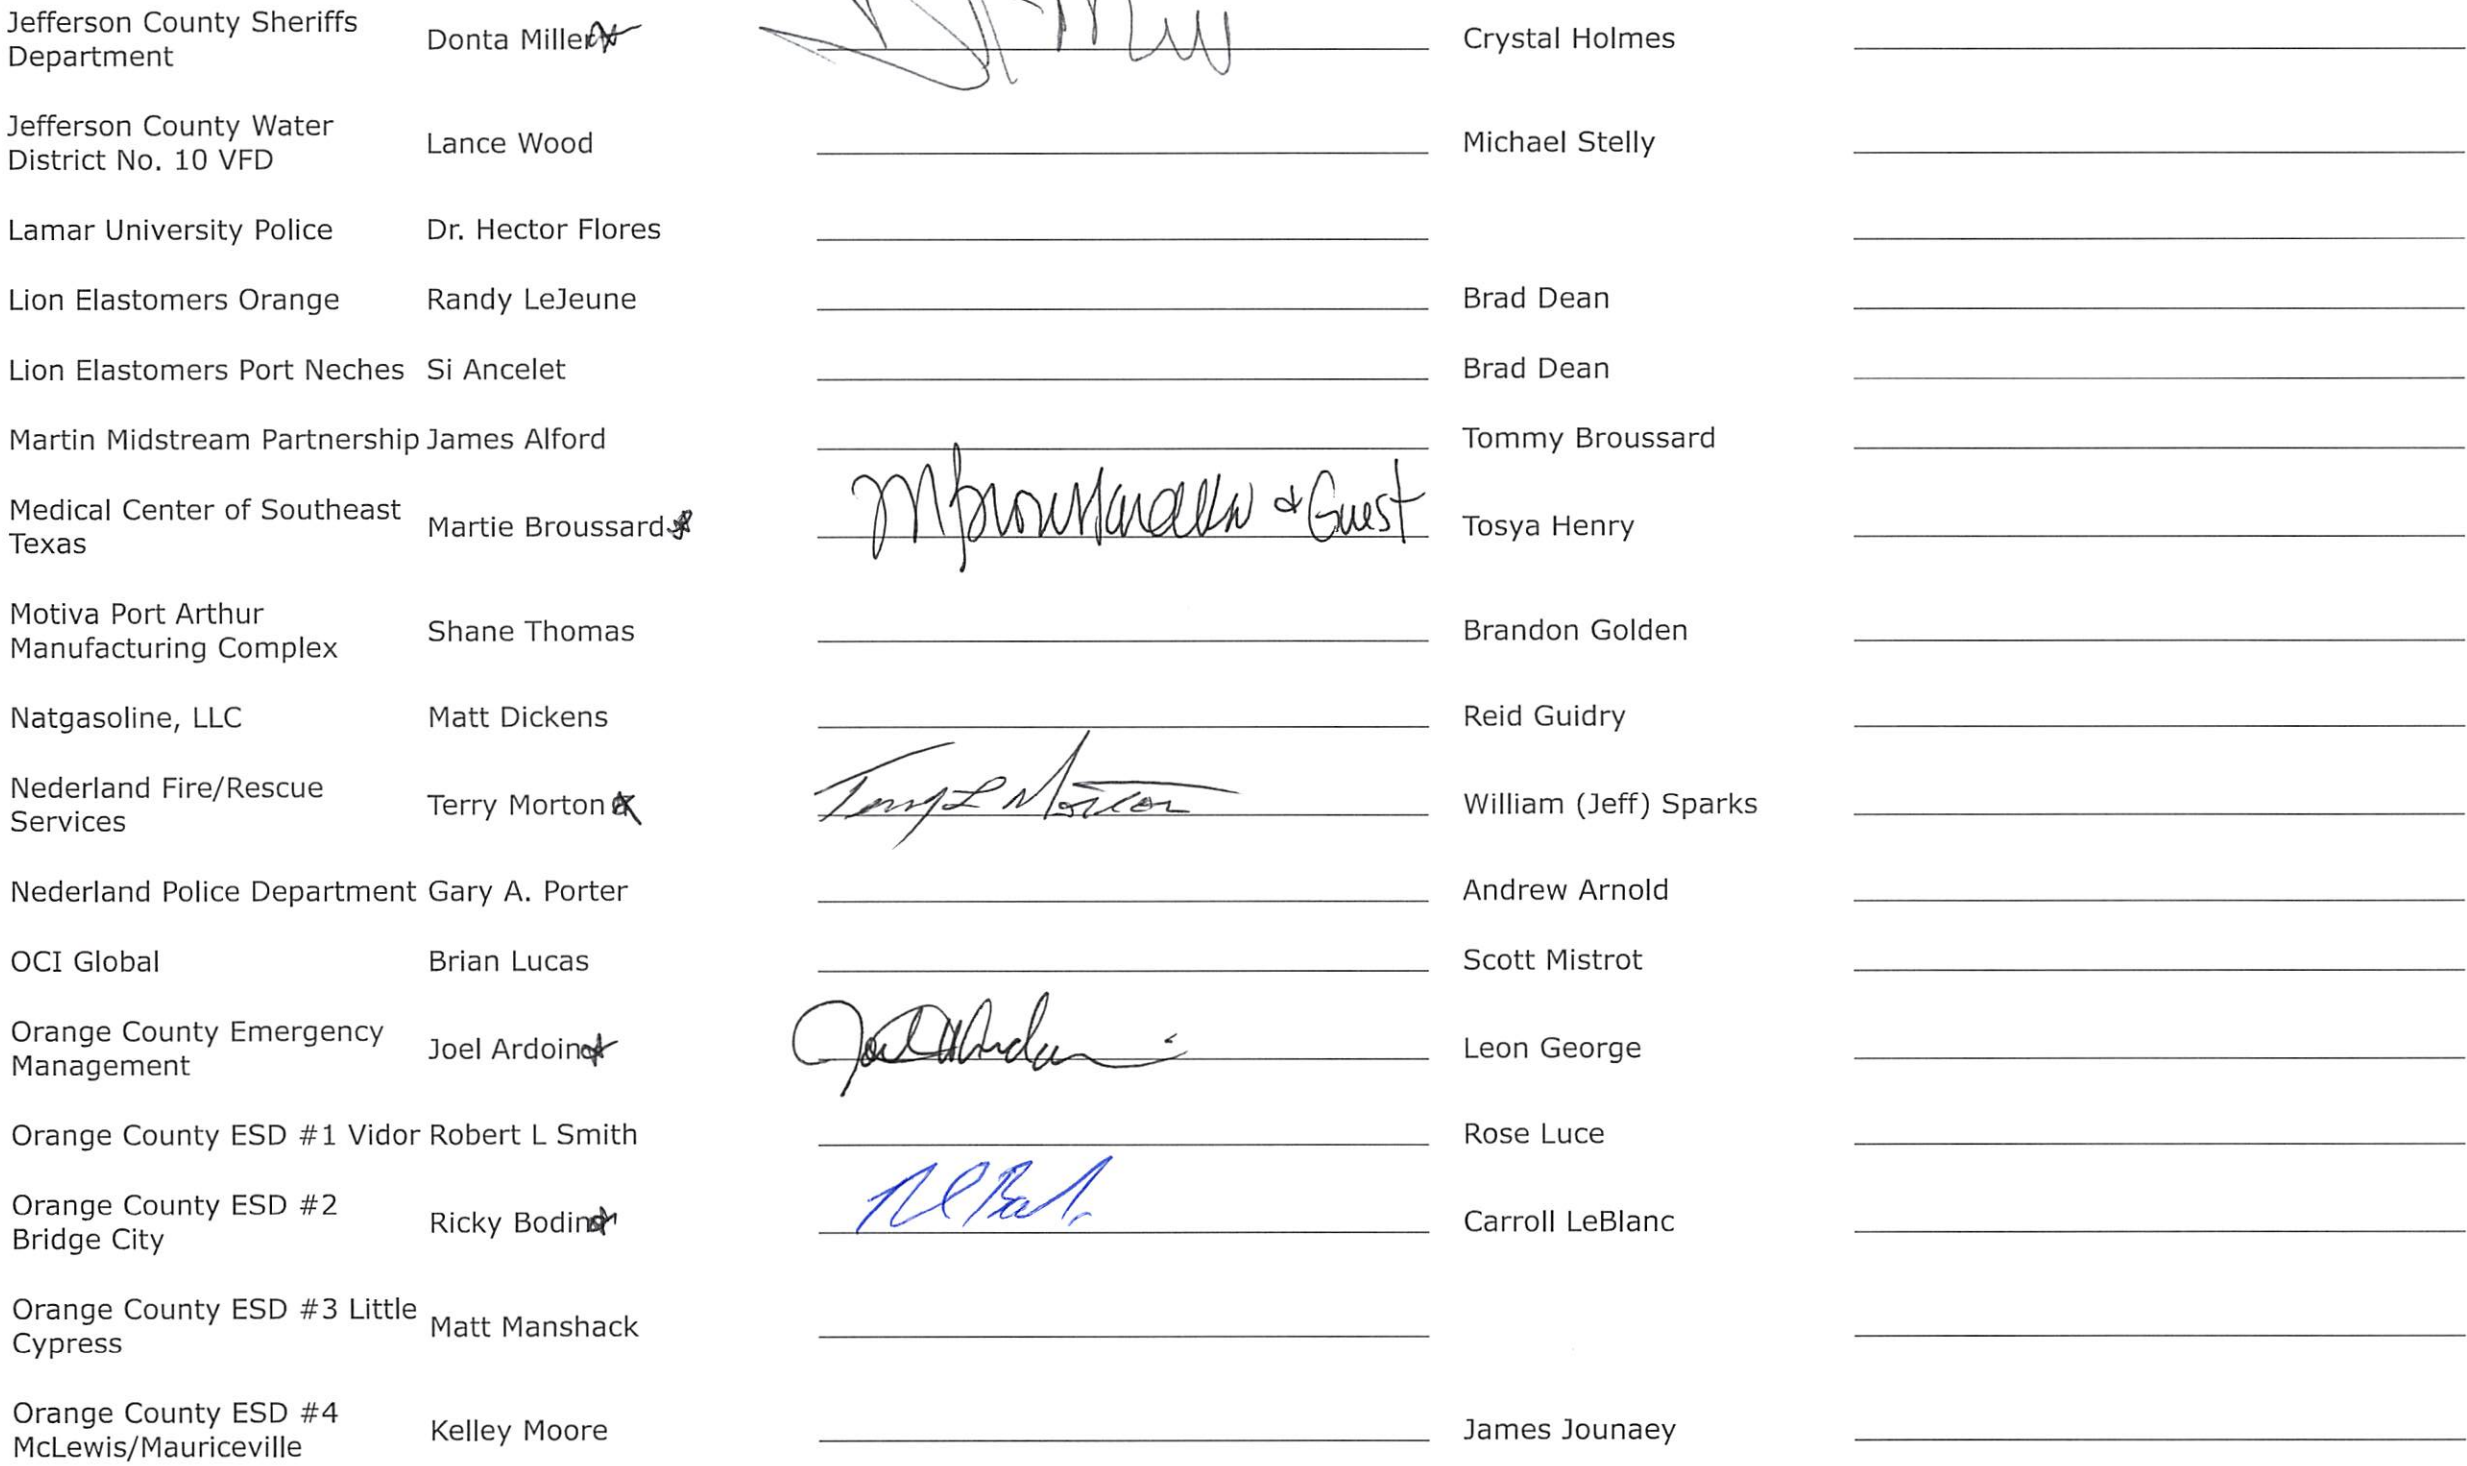 Jefferson County Sheriffs
Department
Donta Miller
Crystal Holmes
Jefferson County Water
District No. 10 VFD
Lance Wood
Michael Stelly
Lamar University Police Dr. Hector Flores
Lion Elastomers Orange Randy LeJeune Brad Dean
Lion Elastomers Port Neches Si Ancelet Brad Dean
Martin Midstream Partnership James Alford Tommy Broussard
Medical Center of Southeast
Texas
Martie Broussard
& Guest
Tosya Henry
Motiva Port Arthur
Manufacturing Complex
Shane Thomas
Brandon Golden
Natgasoline, LLC Matt Dickens Reid Guidry
Nederland Fire/Rescue
Services
Terry Morton
Terry L Morton
William (Jeff) Sparks
Nederland Police Department Gary A. Porter Andrew Arnold
OCI Global Brian Lucas Scott Mistrot
Orange County Emergency
Management
Joel Ardoin
Leon George
Orange County ESD #1 Vidor Robert L Smith Rose Luce
Orange County ESD #2
Bridge City
Ricky Bodin
Carroll LeBlanc
Orange County ESD #3 Little
Cypress
Matt Manshack
Orange County ESD #4
McLewis/Mauriceville
Kelley Moore
James Jounaey